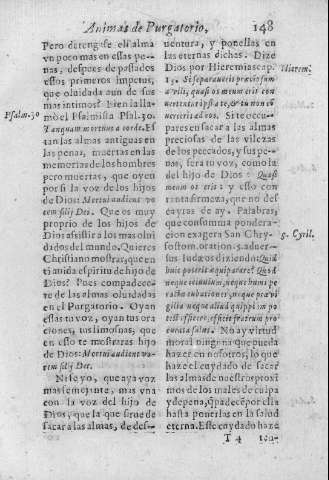 Animas de Purgatorio. 148
Pero detengase el alma
vn poco mas en essas pe-
nas, despues de passados
essos primeros impetus,
que oluidada aun de sus
mas intimos? Bien la lla-
mò el Psalmista Psal. 30
Psalm. 30
Tanquam mortuus a corde. Es-
tan las almas antiguas en
las penas, muertas en las
memorias de los hombres
pero muertas, que oyen
por si la voz del hijo
de Dios: Mortui audient vo
cem filij Dei. Que es muy
proprio de los hijos de
Dios assistir a los mas olui
dados del mundo. Quieres
Christiano mostrar, que en
ti anida espiritu de hijo de
Dios? Pues compadece-
te de las almas oluidadas
en el Purgatorio. Oyan
estas tu voz, oyan tus ora
ciones, tus limosnas, que
en esto te mostraràs hijo
de Dios: Mortui audient vo-
cem filij Dei.
Ni se yo, que aya voz
mas semejante, mas vna
con la voz del hijo de
Dios, que la que sirue de
sacar a las almas, de des-
uentura, y ponellas en
las eternas dichas. Dize
Dios por Hieremias cap.
Hierem.
15. Si separaueris pretiosum
a vili, quasi os meum eris con
uertentur ipsi ad te, & tu non cõ
uerteris ad eos. Si te ocu-
pares en sacar a las almas
preciosas de las vilezas
de los peccados, y sus pe-
nas, sera tu voz, como la
del hijo de Dios: Quasi
os meum eris: y esto con
tanta firmeza, que no des
cayras de ay. Palabras,
que con summa pondera-
cion exagera San Chry-
S. Cyril.
sostom. oration. 5. aduer-
sus Iudæos diziendo: Quid
huic poterit æquiparare? Quod
neque ieiunium, neque humi
cubationes, neque pervi
gilia neque aliud quippiam po
test efficere, efficit fratrum pro
curata salus. No ay virtud
moral ninguna que pueda
hazer en nosotros, lo que
haze el cuydado de sacar
las almas de nuestros proxi
mos de los males de culpa
y de pena, q̃ padecen por ella
hasta ponerlas en la salud
eterna. Este cuydado haze
T 4